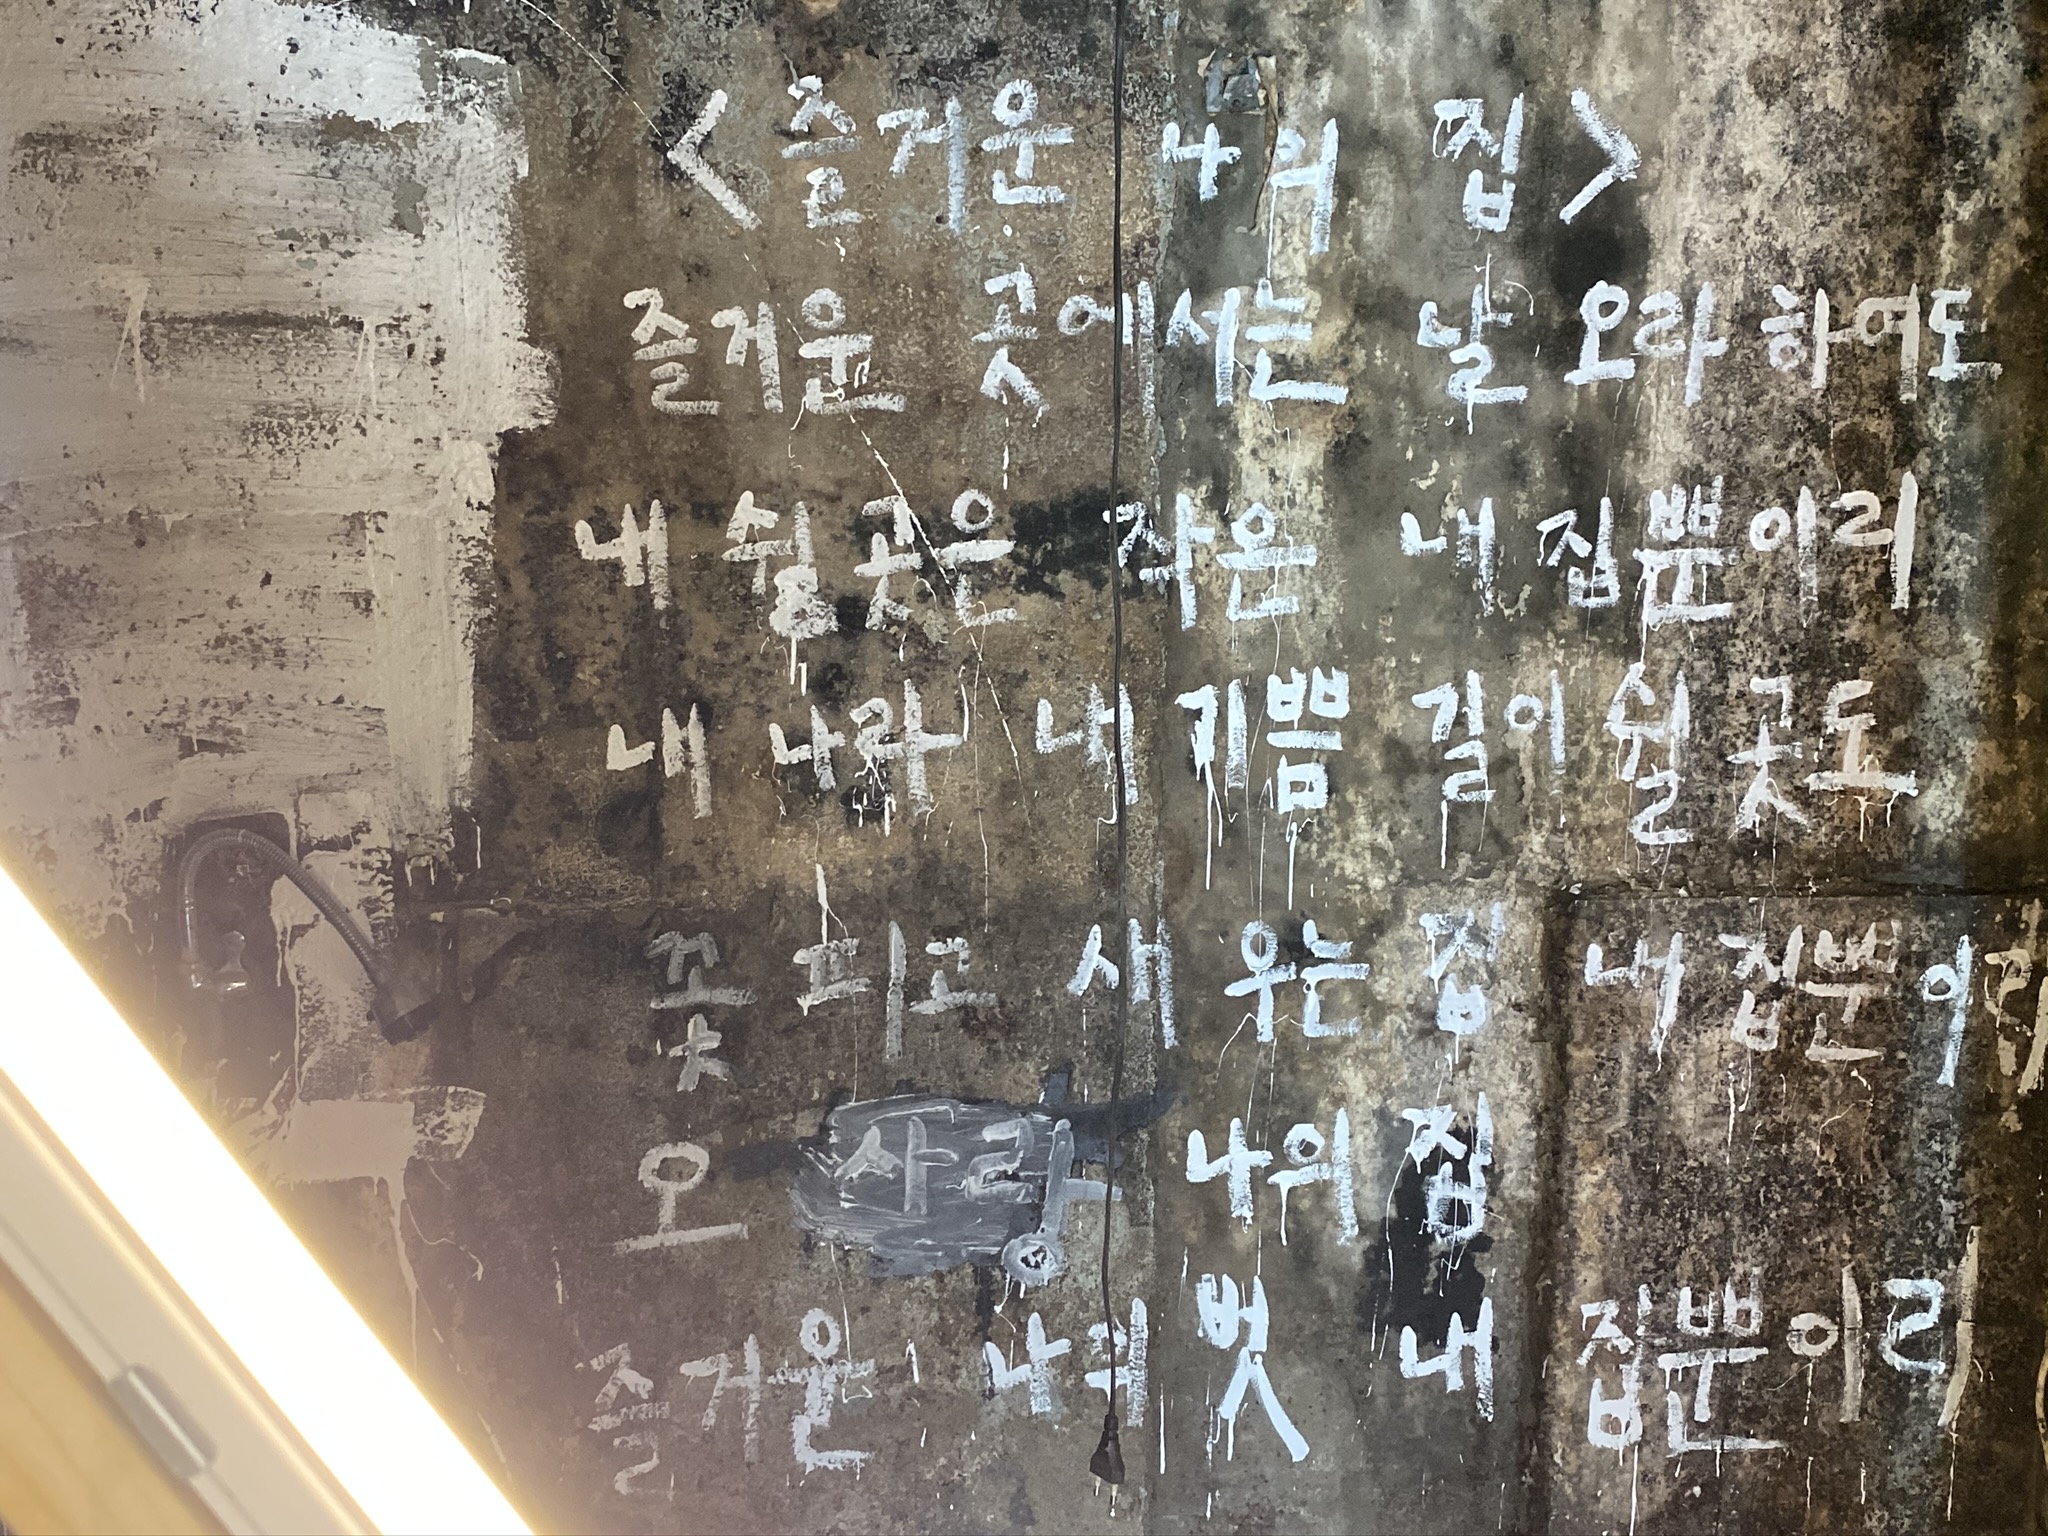 <즐거운 나의 집>
즐거운 곳에서는 날 오라 하여도
내 쉴 곳은 작은 내 집뿐이리
내 나라 내 기쁨 길이 쉴 곳도
꽃 피고 새 우는 집 내 집뿐이리
오 사랑 나의 집
즐거운 나의 벗 내 집뿐이리